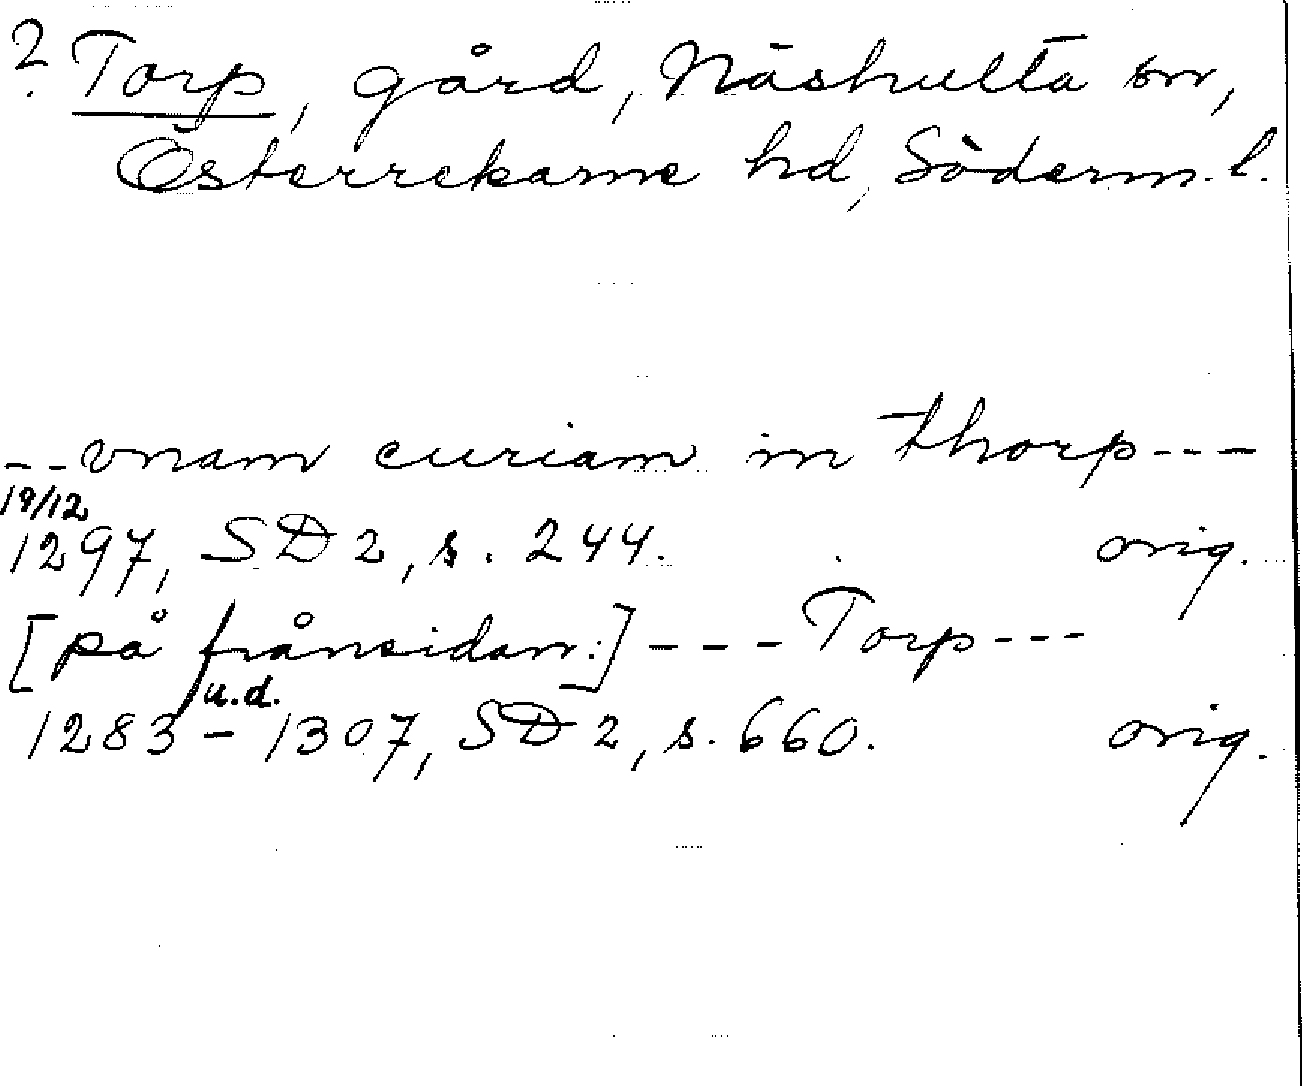 ? Torp, gård, Näshulta sn,
Österrekarne hd, Söderm. l.
-- vnam curiam in thorp---
19/12
1297, SD 2, s. 244. orig.
[på frånsidan:] --- Torp---
u.d.
1283 - 1307, SD 2, s. 660. orig.